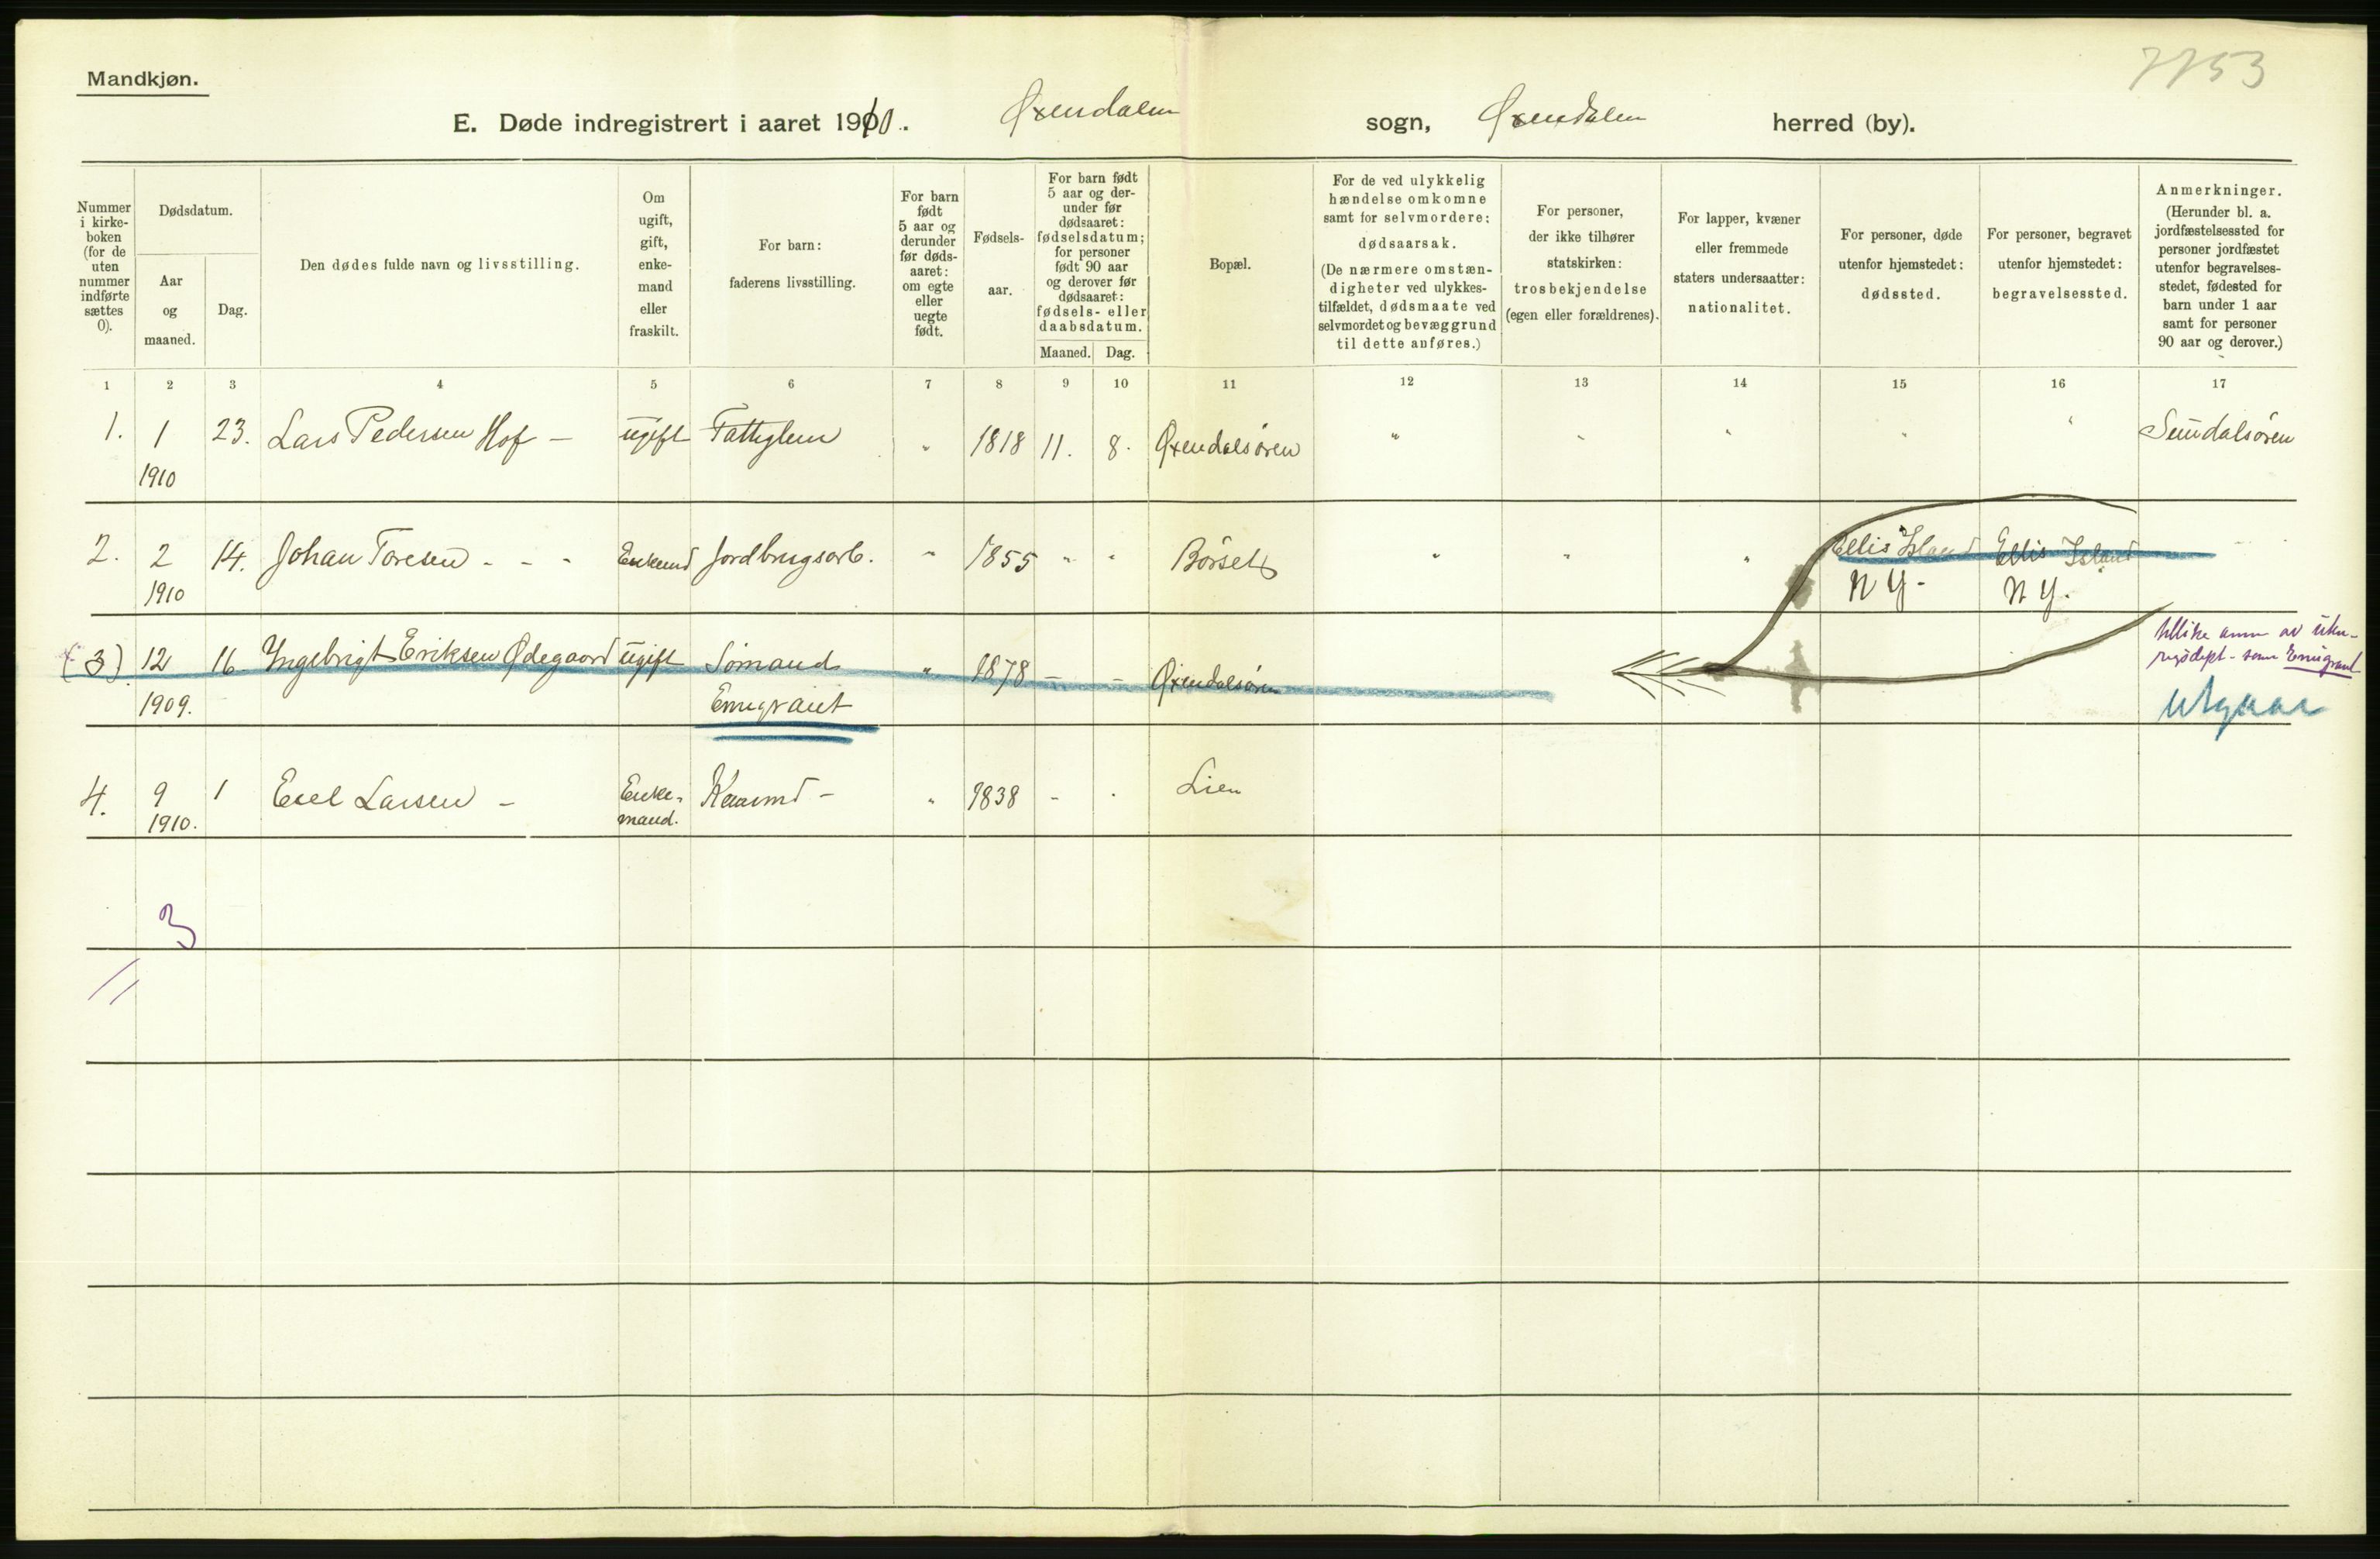 7753
Mandkjøn.
E. Døde indregistrert i aaret 1910. Øxendalen sogn, Øxendalen herred (by).
Nummer
i kirke-
boken
(for de
uten
nummer
indførte
sættes
0).
Dødsdatum.
Aar
og
maaned.
Dag.
Den dødes fulde navn og livsstilling.
Om
ugift,
gift,
enke-
mand
eller
fraskilt.
For barn:
faderens livsstilling.
For barn
født
5 aar og
derunder
før døds-
aaret:
om egte
eller
uegte
født.
Fødsels-
aar.
For barn født
5 aar og der-
under før
dødsaaret:
fødselsdatum;
for personer
født 90 aar
og derover før
dødsaaret:
fødsels- eller
daabsdatum.
Maaned. Dag.
Bopæl.
For de ved ulykkelig
hændelse omkomne
samt for selvmordere:
dødsaarsak.
(De nærmere omstæn-
digheter ved ulykkes-
tilfældet, dødsmaate ved
selvmordet og bevæggrund
til dette anføres.)
For personer,
der ikke tilhører
statskirken:
trosbekjendelse
(egen eller forældrenes).
For lapper, kvæner
eller fremmede
staters undersaatter:
nationalitet.
For personer, døde
utenfor hjemstedet:
dødssted.
For personer, begravet
utenfor hjemstedet:
begravelsessted.
Anmerkninger.
(Herunder bl. a.
jordfæstelsessted for
personer jordfæstet
utenfor begravelses-
stedet, fødested for
barn under 1 aar
samt for personer
90 aar og derover.)
1 2 3 4 5 6 7 8 9 10 11 12 13 14 15 16 17
1. 1 23. Lars Pedersen Hof - ugift Fattiglem " 1818 11. 8. Øxendalsøren " " " " " Sundalsøren
1910
2. 2 14. Johan Toresen - - - Enkemd Jordbrugsarb. " 1855 " " Børset " " " Ellis Island Ellis Island
1910 NY. NY.
(3) 12 16 Yngebrigt Eriksen Ødegaard ugift Sømand " 1878 - - Øxendalsøren
1909. Emigrant
som Emigrant
utgaar
4. 9 1 Exel Larsen - Enke- " 1838 - . Lien
1910. mand.
3